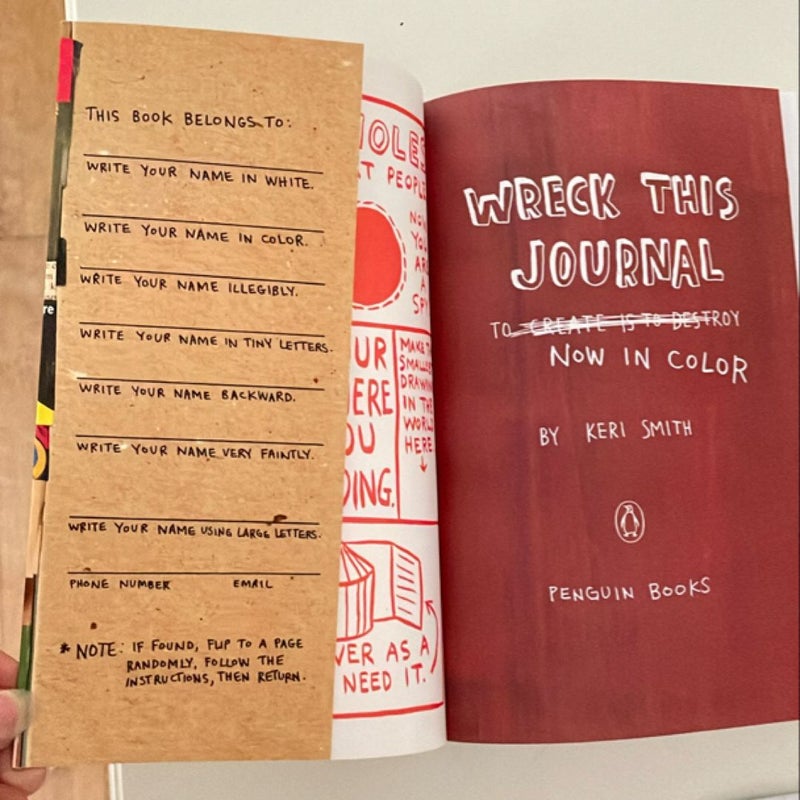 THIS BOOK BELONGS TO:
WRITE YOUR NAME IN WHITE.
WRITE YOUR NAME IN COLOR.
WRITE YOUR NAME ILLEGIBLY.
WRITE YOUR NAME IN TINY LETTERS.
WRITE YOUR NAME BACKWARD.
WRITE YOUR NAME VERY FAINTLY.
WRITE YOUR NAME USING LARGE LETTERS.
PHONE NUMBER EMAIL
* NOTE: IF FOUND, FLIP TO A PAGE
RANDOMLY, FOLLOW THE
INSTRUCTIONS, THEN RETURN.
PEOPLE
YOU
A
SPY
MAKE
SMALLEST
DRAWING
IN THE
WORLD
HERE.
AS A
NEED IT.
WRECK THIS
JOURNAL
TO CREATE IS TO DESTROY
NOW IN COLOR
BY KERI SMITH
PENGUIN BOOKS